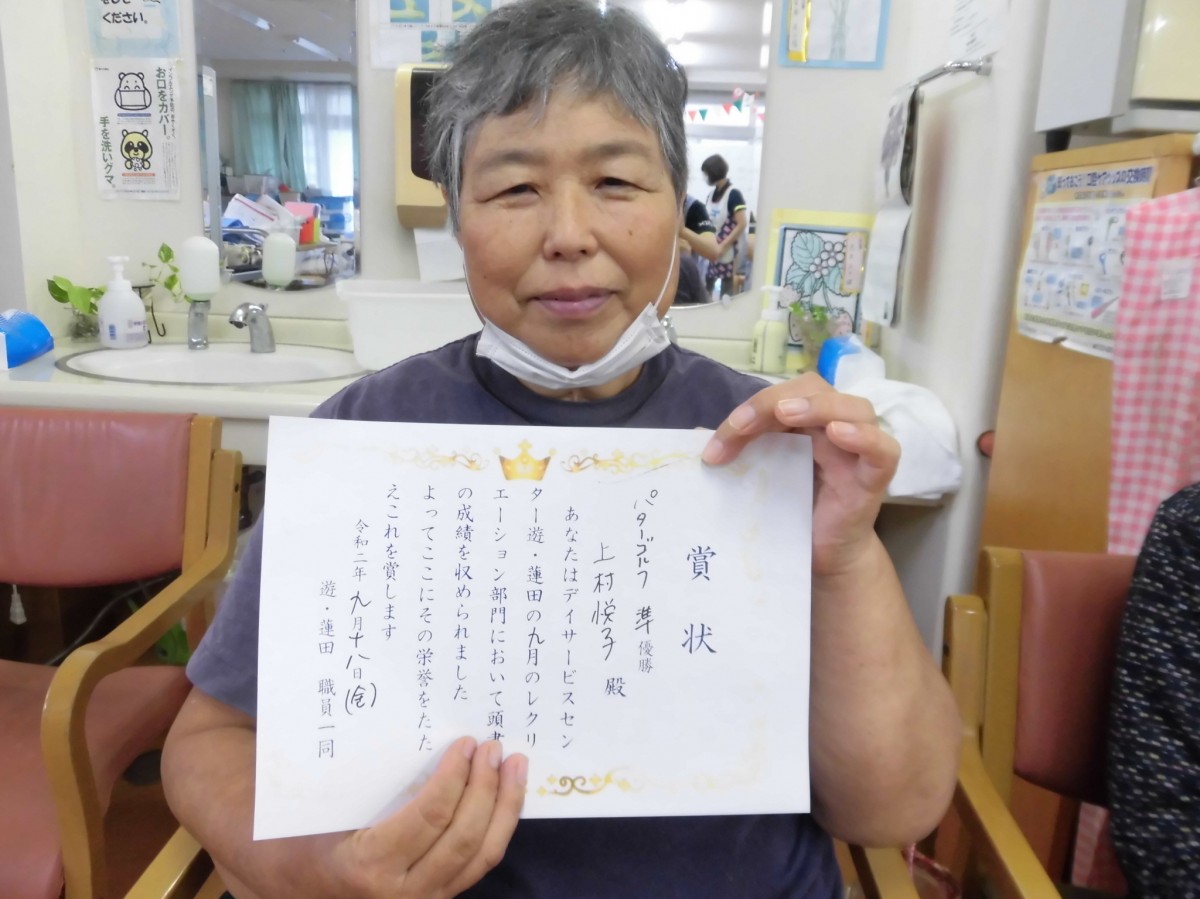 賞状
パターゴルフ 準優勝
上村悦子 殿
あなたはデイサービスセン
ター遊・蓮田の九月のレクリ
エーション部門において頭書
の成績を収められました
よってここにその栄誉をたた
えこれを賞します
令和二年九月十八日(金)
遊・蓮田 職員一同
ください。
お口をカバー。
手を洗いグマ。